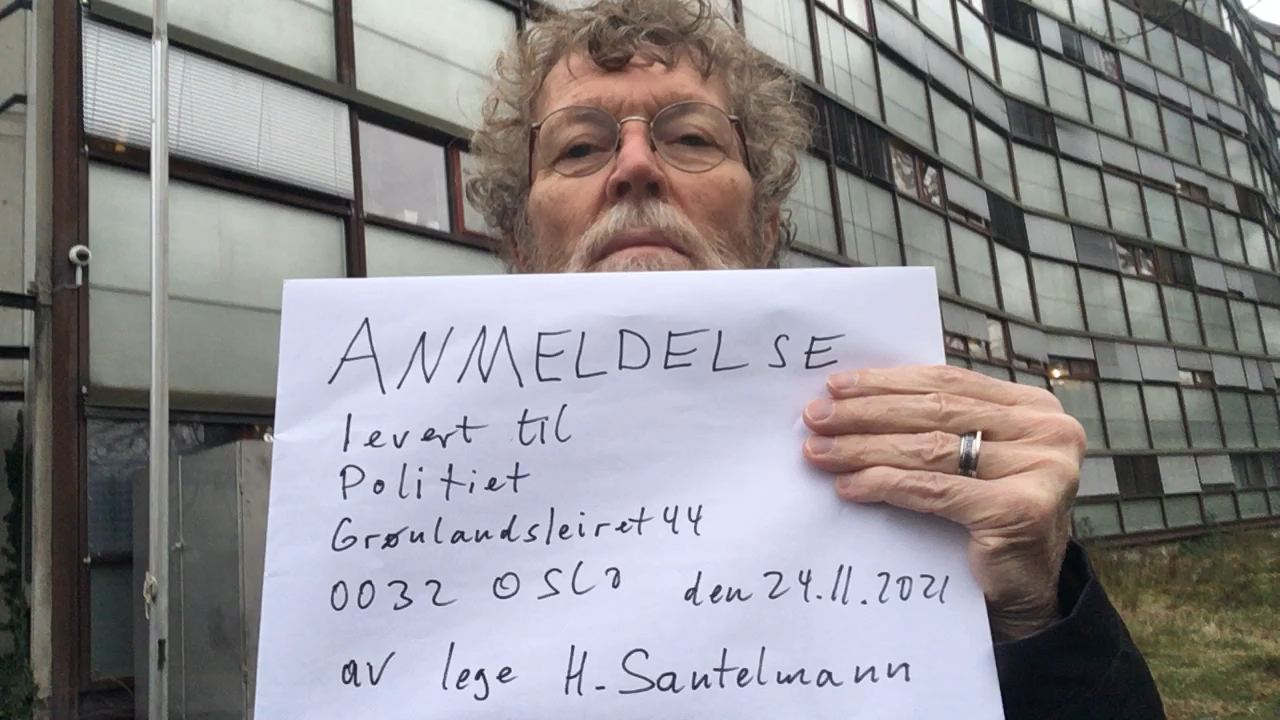 ANMELDELSE
levert til
Politiet
Grønlandsleiret 44
0032 OSLO den 24.11.2021
av lege H. Santelmann